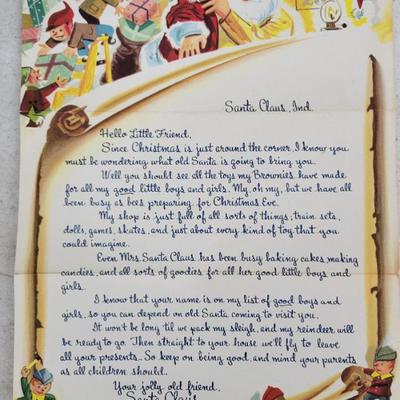 Santa Claus, Ind.
Hello Little Friend,
Since Christmas is just around the corner, I know you
must be wondering what old Santa is going to bring you.
Well you should see all the toys my Brownies have made
for all my good little boys and girls. My, oh my, but we have all
been busy as bees preparing for Christmas Eve.
My shop is just full of all sorts of things; train sets,
dolls, games, skates, and just about every kind of toy that you
could imagine.
Even Mrs. Santa Claus has been busy baking cakes, making
candies, and all sorts of goodies for all her good little boys and
girls.
I know that your name is on my list of good boys and
girls, so you can depend on old Santa coming to visit you.
It won't be long til we pack my sleigh, and my reindeer will
be ready to go. Then straight to your house we'll fly to leave
all your presents. So keep on being good, and mind your parents
as all children should.
Your jolly old friend,
Santa Claus